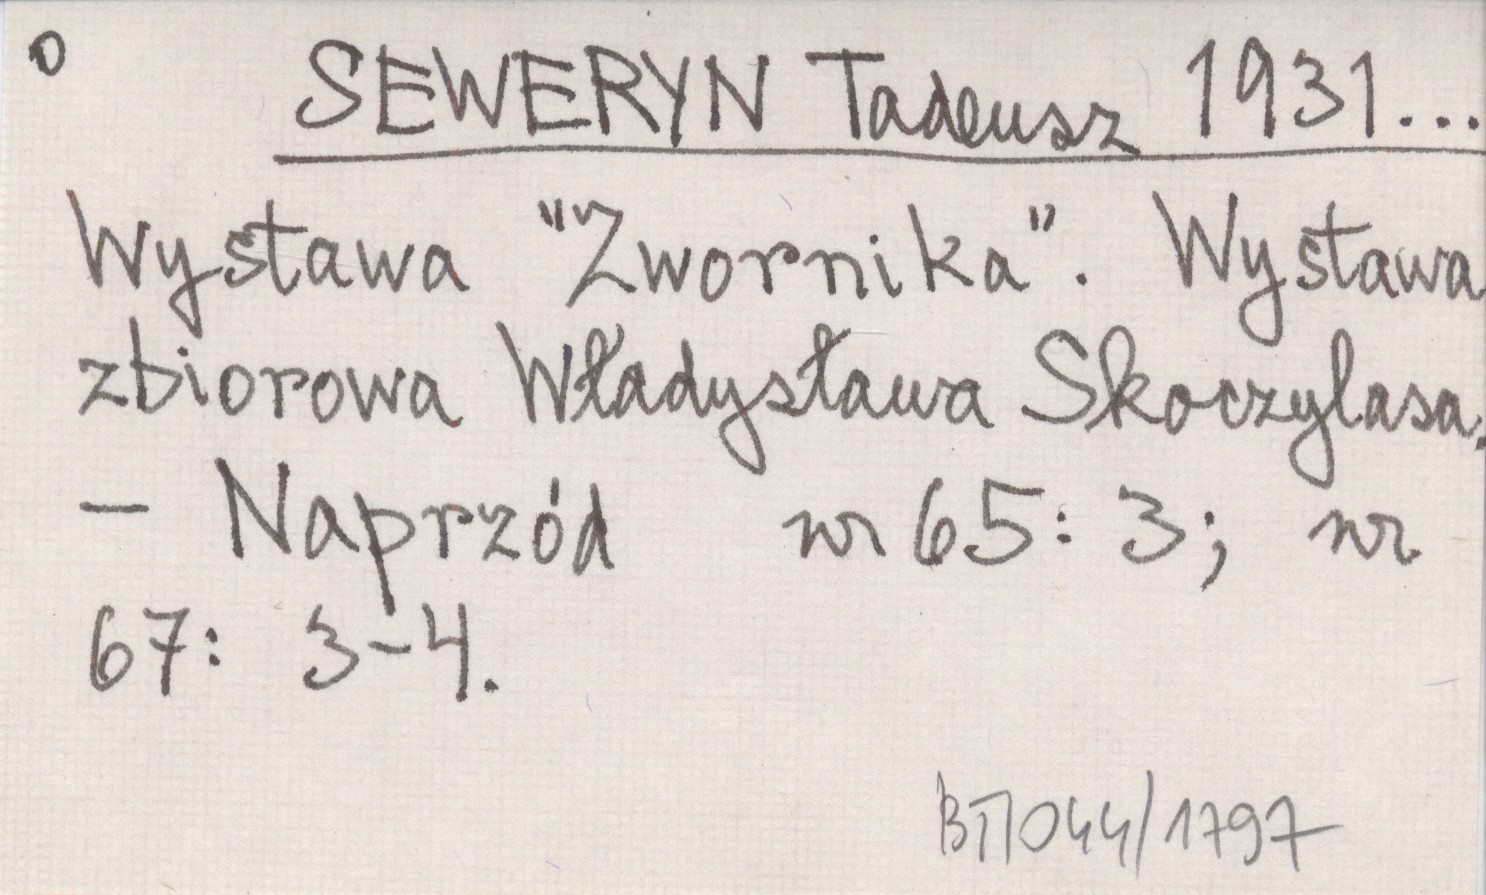 o
SEWERYN Tadeusz 1931...
Wystawa "Zwornika". Wystawa
zbiorowa Władysława Skoczylasa.
– Naprzód nr 65: 3; nr
67: 3–4.
BT/044/1797